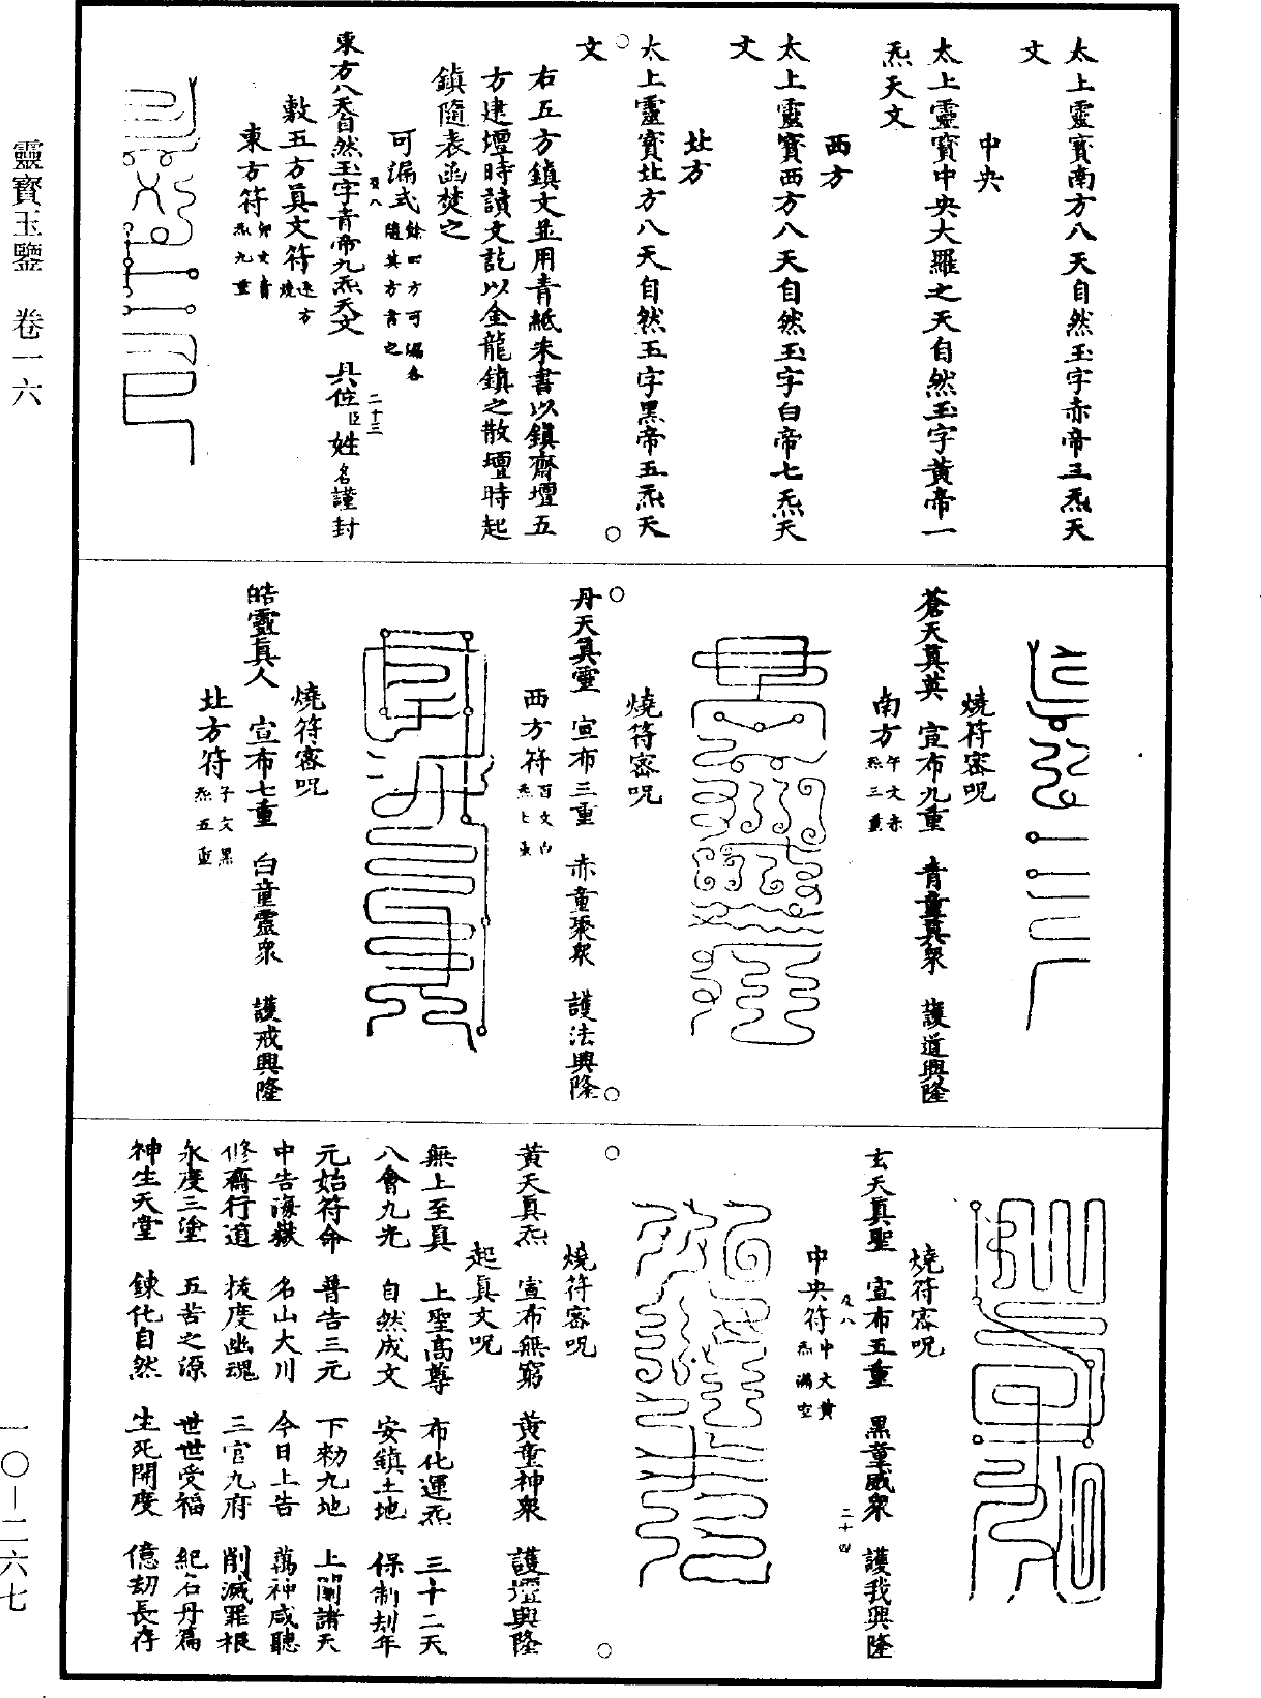 太上靈寳南方八天自然玉字赤帝三炁天
文
中央
太上靈寳中央大羅之天自然玉字黃帝一
炁天文
西方
太上靈寳西方八天自然玉字白帝七炁天
文
北方
太上靈寳北方八天自然玉字黑帝五炁天
文
右五方鎮文並用青紙朱書以鎮齋壇五
方建壇時讀文訖以金龍鎮之散壇時起
鎮隨表函焚之
可漏式餘四方可漏各
隨其方書之
及八
二十三
東方八天自然玉字青帝九炁天文 具位臣姓名謹封
敷五方眞文符逐方
燒
東方符卯文青
炁九重
燒符密呪
蒼天眞英 宣布九重 青童眞衆 護道興隆
南方午文赤
炁三重
燒符密呪
丹天眞靈 宣布三重 赤童衆 護法興隆
西方符酉文白
炁七重
燒符密呪
皓靈眞人 宣布七重 白童靈衆 護戒興隆
北方符子文黑
炁五重
燒符密呪
玄天眞聖 宣布五重 黑童威衆 護我興隆
及八
二十四
中央符中文黃
炁滿空
燒符密呪
黃天眞炁 宣布無窮 黃童神衆 護壇興隆
起眞文呪
無上至眞 上聖高尊 布化運炁 三十二天
八會九光 自然成文 安鎮土地 保制刦年
元始符命 普告三元 下勑九地 上闡諸天
中告海嶽 名山大川 今日上告 萬神咸聽
修齋行道 拔度幽魂 三官九府 削滅罪根
永度三塗 五苦之源 世世受福 紀名丹篇
神生天堂 鍊化自然 生死開度 億刧長存
靈寶玉鑒 卷一六
一〇-二六七